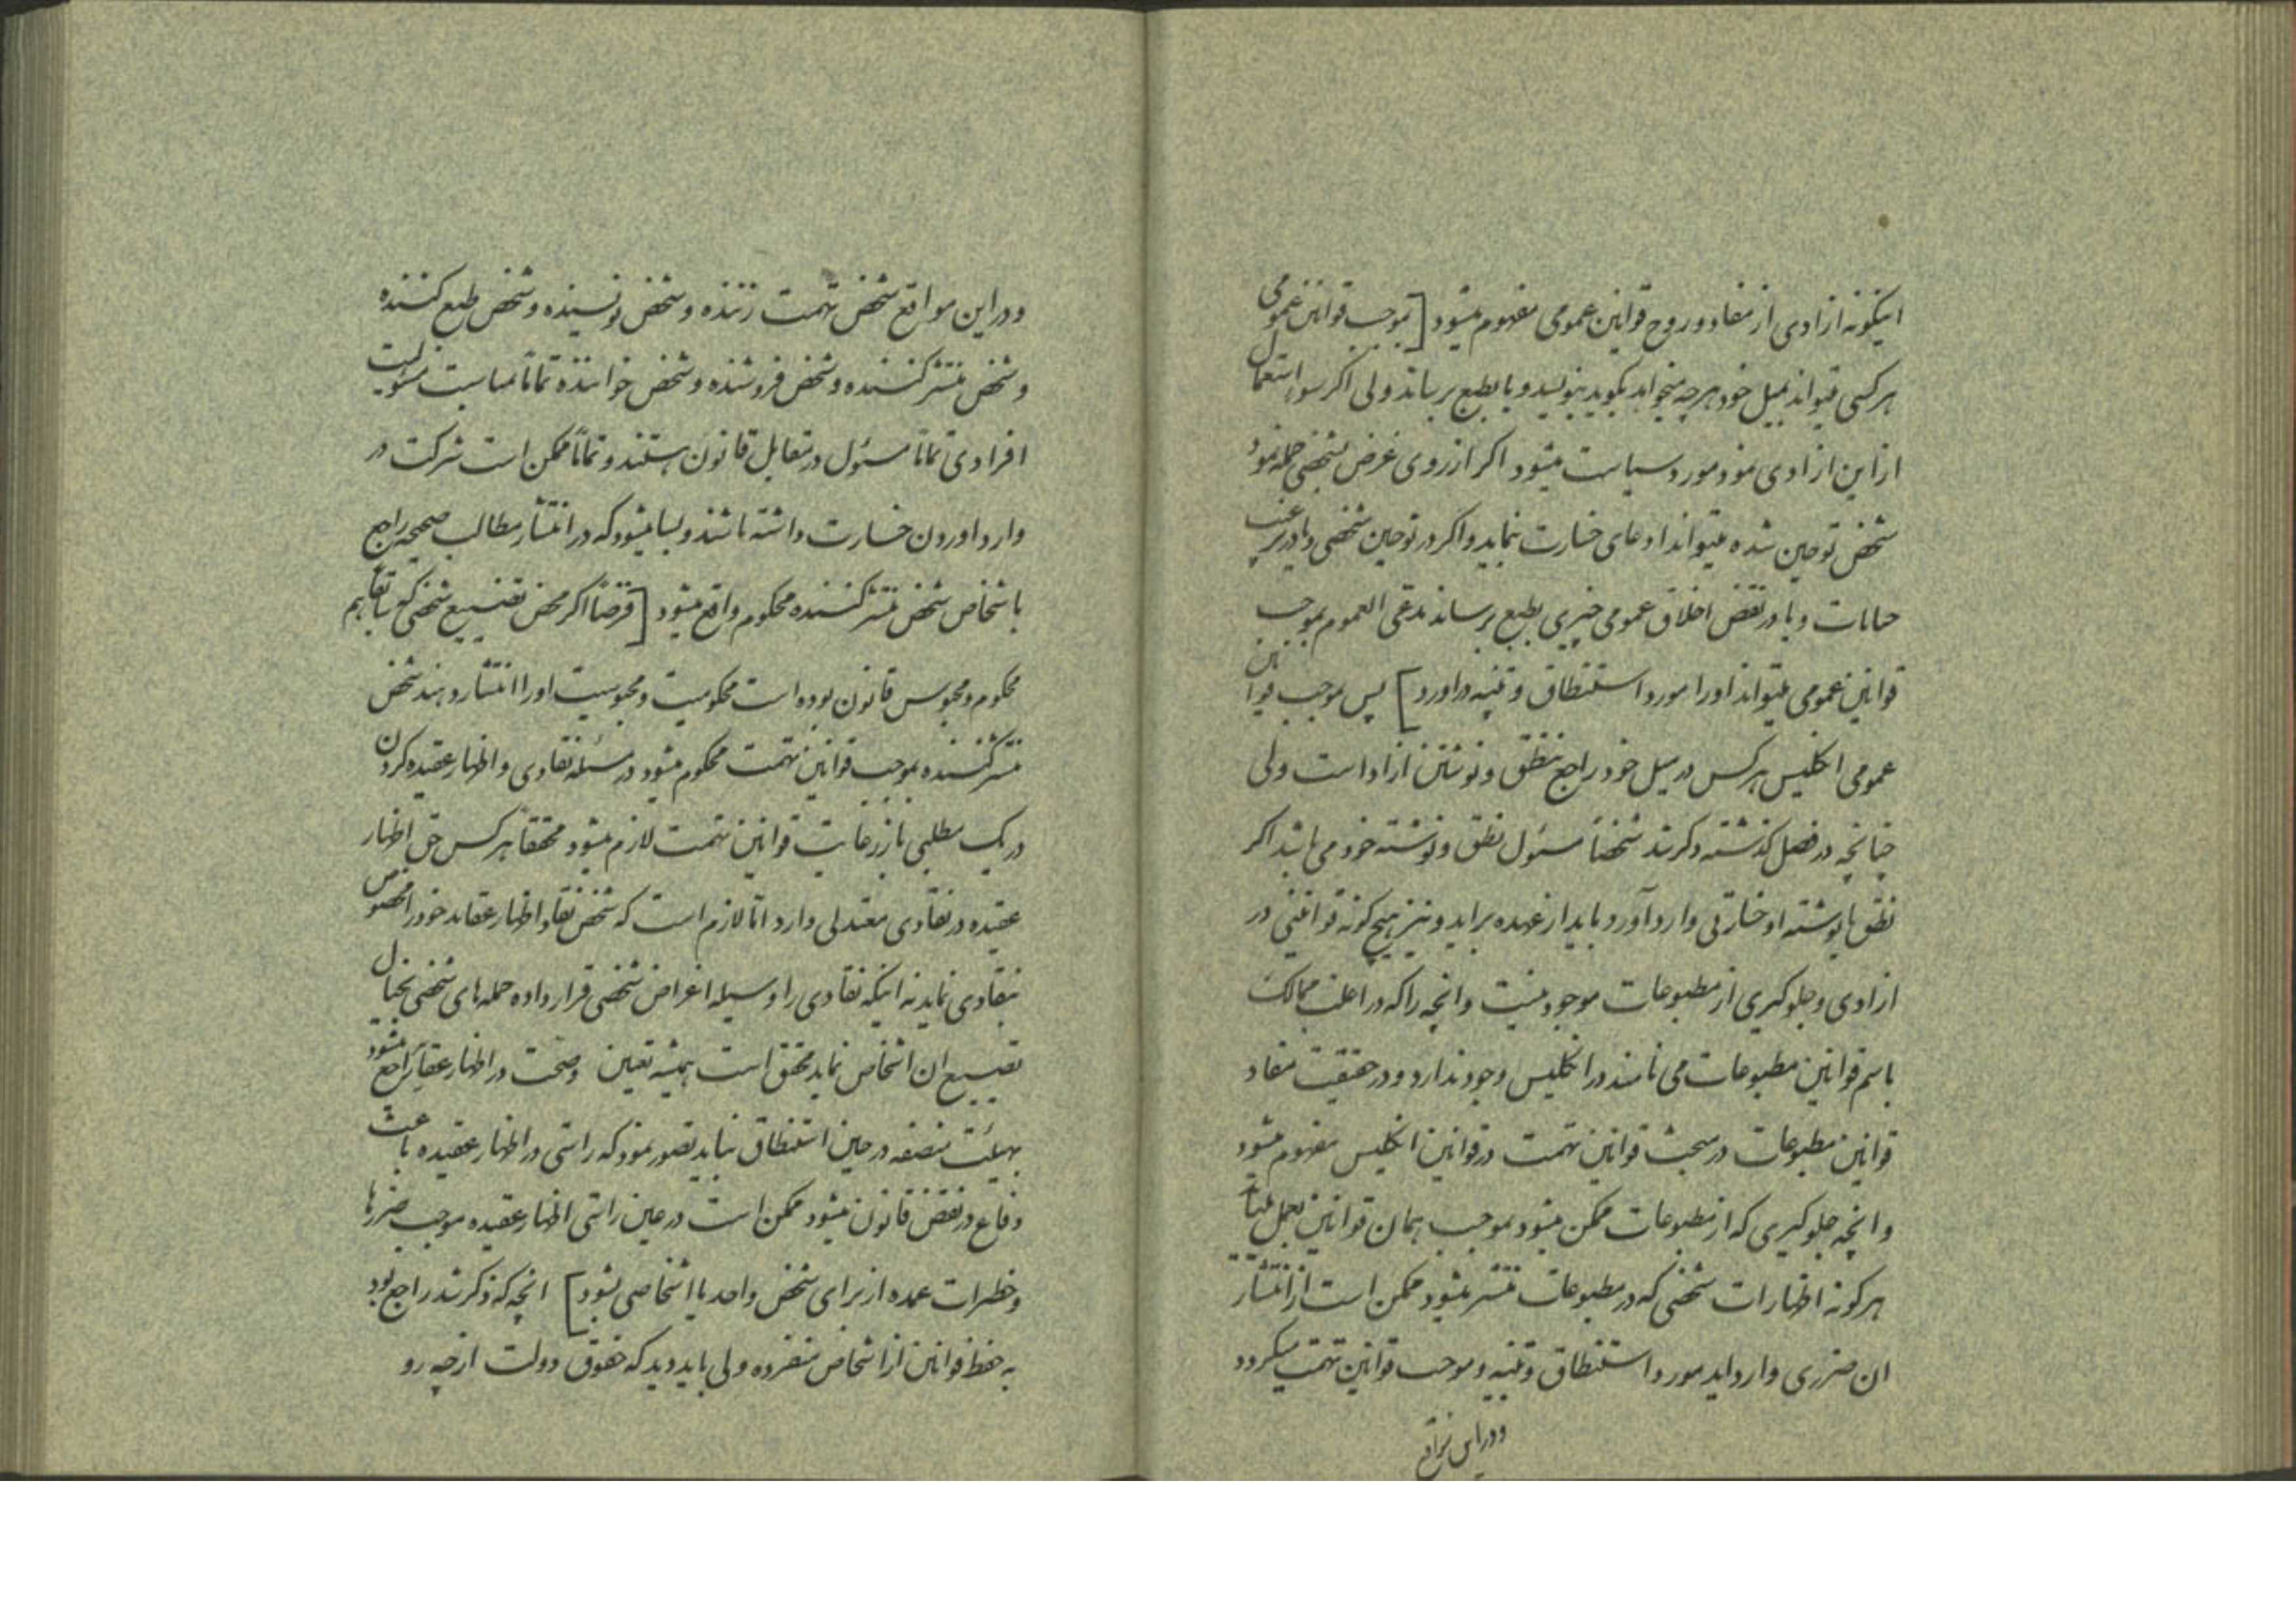 اینگونه ازادی از مفاد و روح قوانین عمومی مفهوم میشود [بموجب قوانین عمومی
هر کسی میتواند بمیل خود هر چه میخواهد بگوید بنویسد و یا بطبع برساند ولی اکر سوء استعمال
از این ازادی نمود مورد سیاست میشود اکر از روی غرض بشخصی حمله نمود
شخص توحین شده میتواند ادعای خسارت نماید و اکر در توحین شخصی و یا در ترغیب
جنایات و یا در نقض اخلاق عمومی چیزی بطبع برساند مدعی العموم بموجب
قوانین عمومی میتواند او را مورد استنطاق و تنبیه در اورد] پس بموجب قوانین
عمومی انکلیس هر کس در میل خود راجع بنطق و نوشتن ازاد است ولی
چنانچه در فصل کذشته ذکر شد شخصاً مسئول نطق و نوشته خود می باشد اکر
نطق یا نوشته او خسارتی وارد آورد باید از عهده براید و نیز هیچ کونه قوانینی در
ازادی و جلوکیری از مطبوعات موجود نیست و انچه را که در اغلب ممالک
باسم قوانین مطبوعات می نامند در انکلیس وجود ندارد و در حقیقت مفاد
قوانین مطبوعات در مبحث قوانین تهمت در قوانین انکلیس مفهوم میشود
و انچه جلوکیری که از مطبوعات ممکن میشود بموجب همان قوانین بعمل میاید
هر کونه اظهارات شخصی که در مطبوعات منتشر میشود ممکن است از انتشار
ان ضرری وارد اید مورد استنطاق و تنبیه و موجب قوانین تهمت میکردد
و در این مواقع
و در این مواقع شخص تهمت زننده و شخص نویسنده و شخص طبع کننده
و شخص منتشر کننده و شخص فروشنده و شخص خواننده تماماً بمناسبت مسئولیت
افرادی تماماً مسئول در مقابل قانون هستند و تماماً ممکن است شرکت در
وارد اوردن خسارت داشته باشند و بسا میشود که در انتشار مطالب صحیحه راجع
باشخاص شخص منتشر کننده محکوم واقع میشود [فرضاً اکر محض تضییع شخصی که سابقاً هم
محکوم و محبوس قانون بوده است محکومیت و محبوسیت او را انتشار دهند شخص
منتشر کننده بموجب قوانین تهمت محکوم میشود در مسئله نقادی و اظهار عقیده کردن
در یک مطلبی باز رعایت قوانین تهمت لازم میشود محققاً هر کس حق اظهار
عقیده در نقادی معتدلی دارد اما لازم است که شخص نقاد اظهار عقاید خود را مخصوص
بنقادی نماید نه اینکه نقادی را وسیله اغراض شخصی قرار داده حمله های شخصی بخیال
تضییع ان اشخاص نماید محقق است همیشه تعیین صحت در اظهار عقاید راجع میشود
بهیئت منصفه در حین استنطاق نباید تصور نمود که راستی در اظهار عقیده باعث
دفاع در نقض قانون میشود ممکن است در عین راستی اظهار عقیده موجب ضررها
و خطرات عمده از برای شخص واحد یا اشخاصی بشود] انچه که ذکر شد راجع بود
به حفظ قوانین از اشخاص منفرده ولی باید دید که حقوق دولت از چه رو